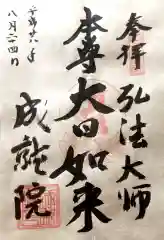 奉拝
弘法大師
本尊大日如来
成就院
平成廿八年
八月二四日